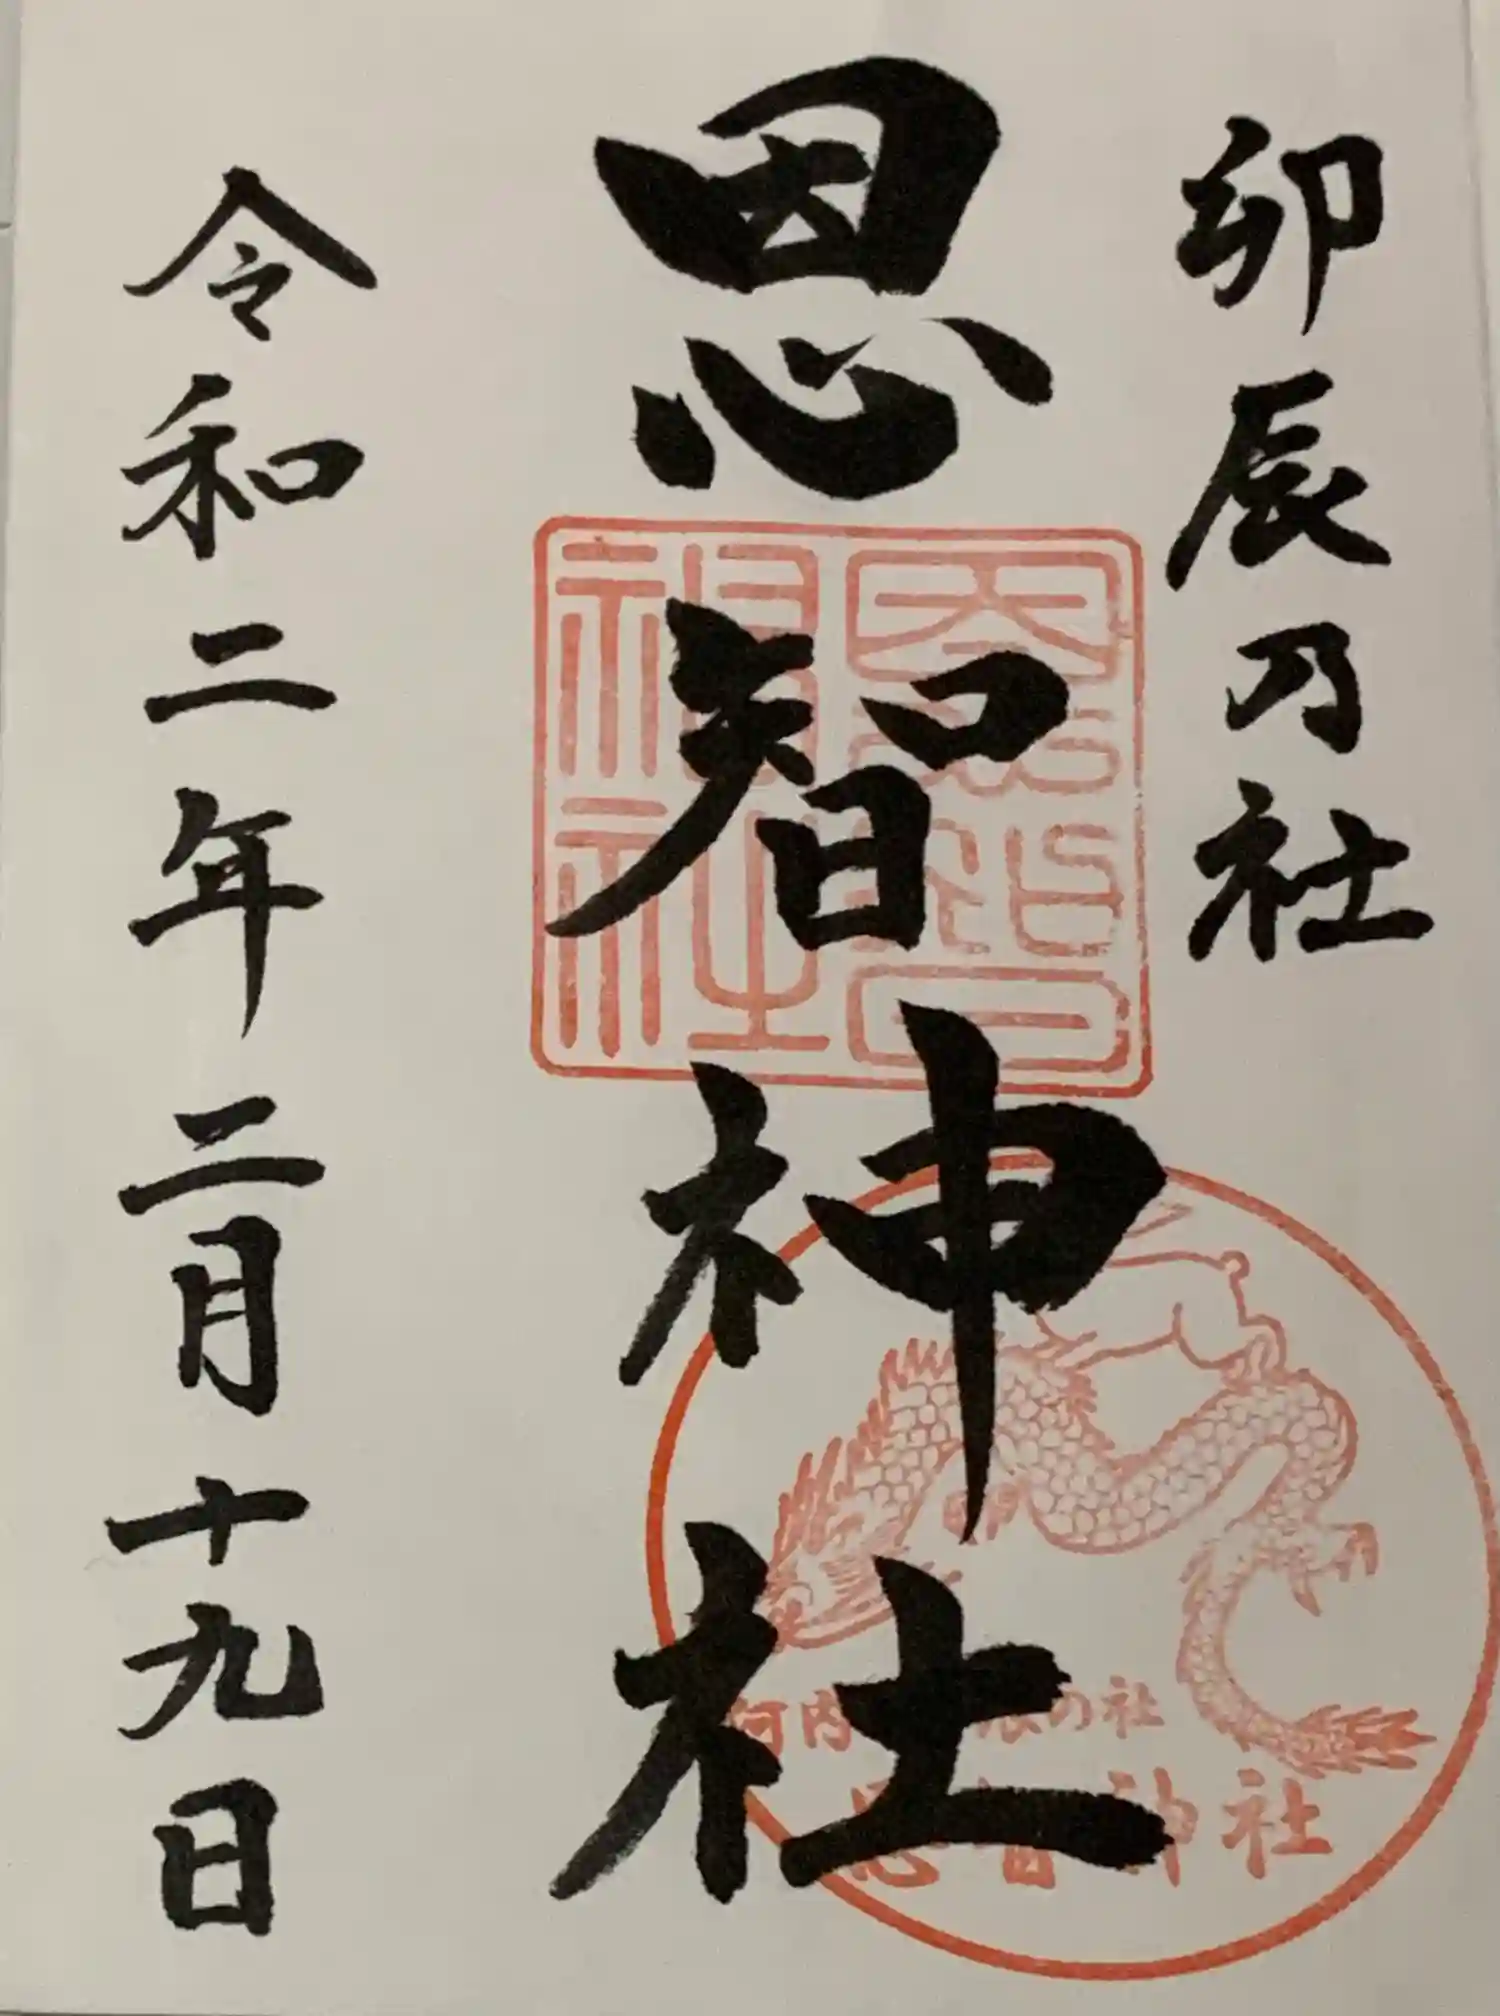 卯辰乃社
恩智神社
令和二年二月十九日
恩智
神社
河内 辰の社
恩智神社